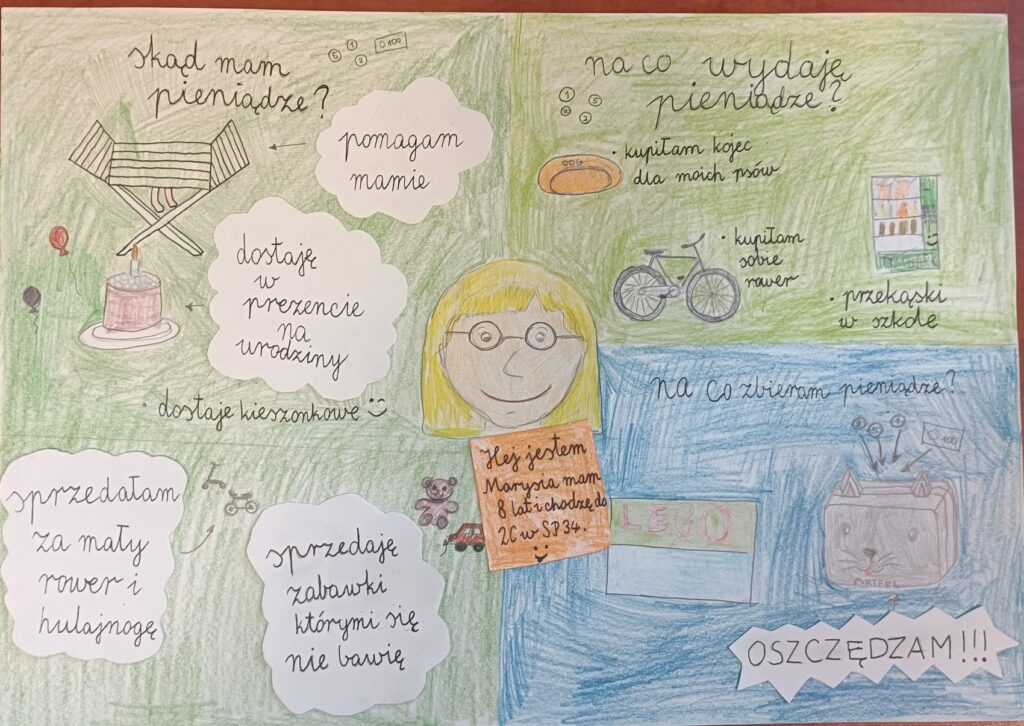 skąd mam
pieniądze?
1
5
2
100
pomagam
mamie
dostaję
w
prezencie
na
urodziny
• dostaje kieszonkowe
sprzedałam
za mały
rower i
hulajnogę
sprzedaję
zabawki
którymi się
nie bawię
Hej jestem
Marysia mam
8 lat i chodzę do
2C w SP34.
na co wydaję
pieniądze?
1
5
2
DOG
• kupiłam kojec
dla moich psów
• kupiłam
sobie
rower
• przekąski
w szkole
na co zbieram pieniądze?
LEGO
100
PORTFEL
OSZCZĘDZAM!!!